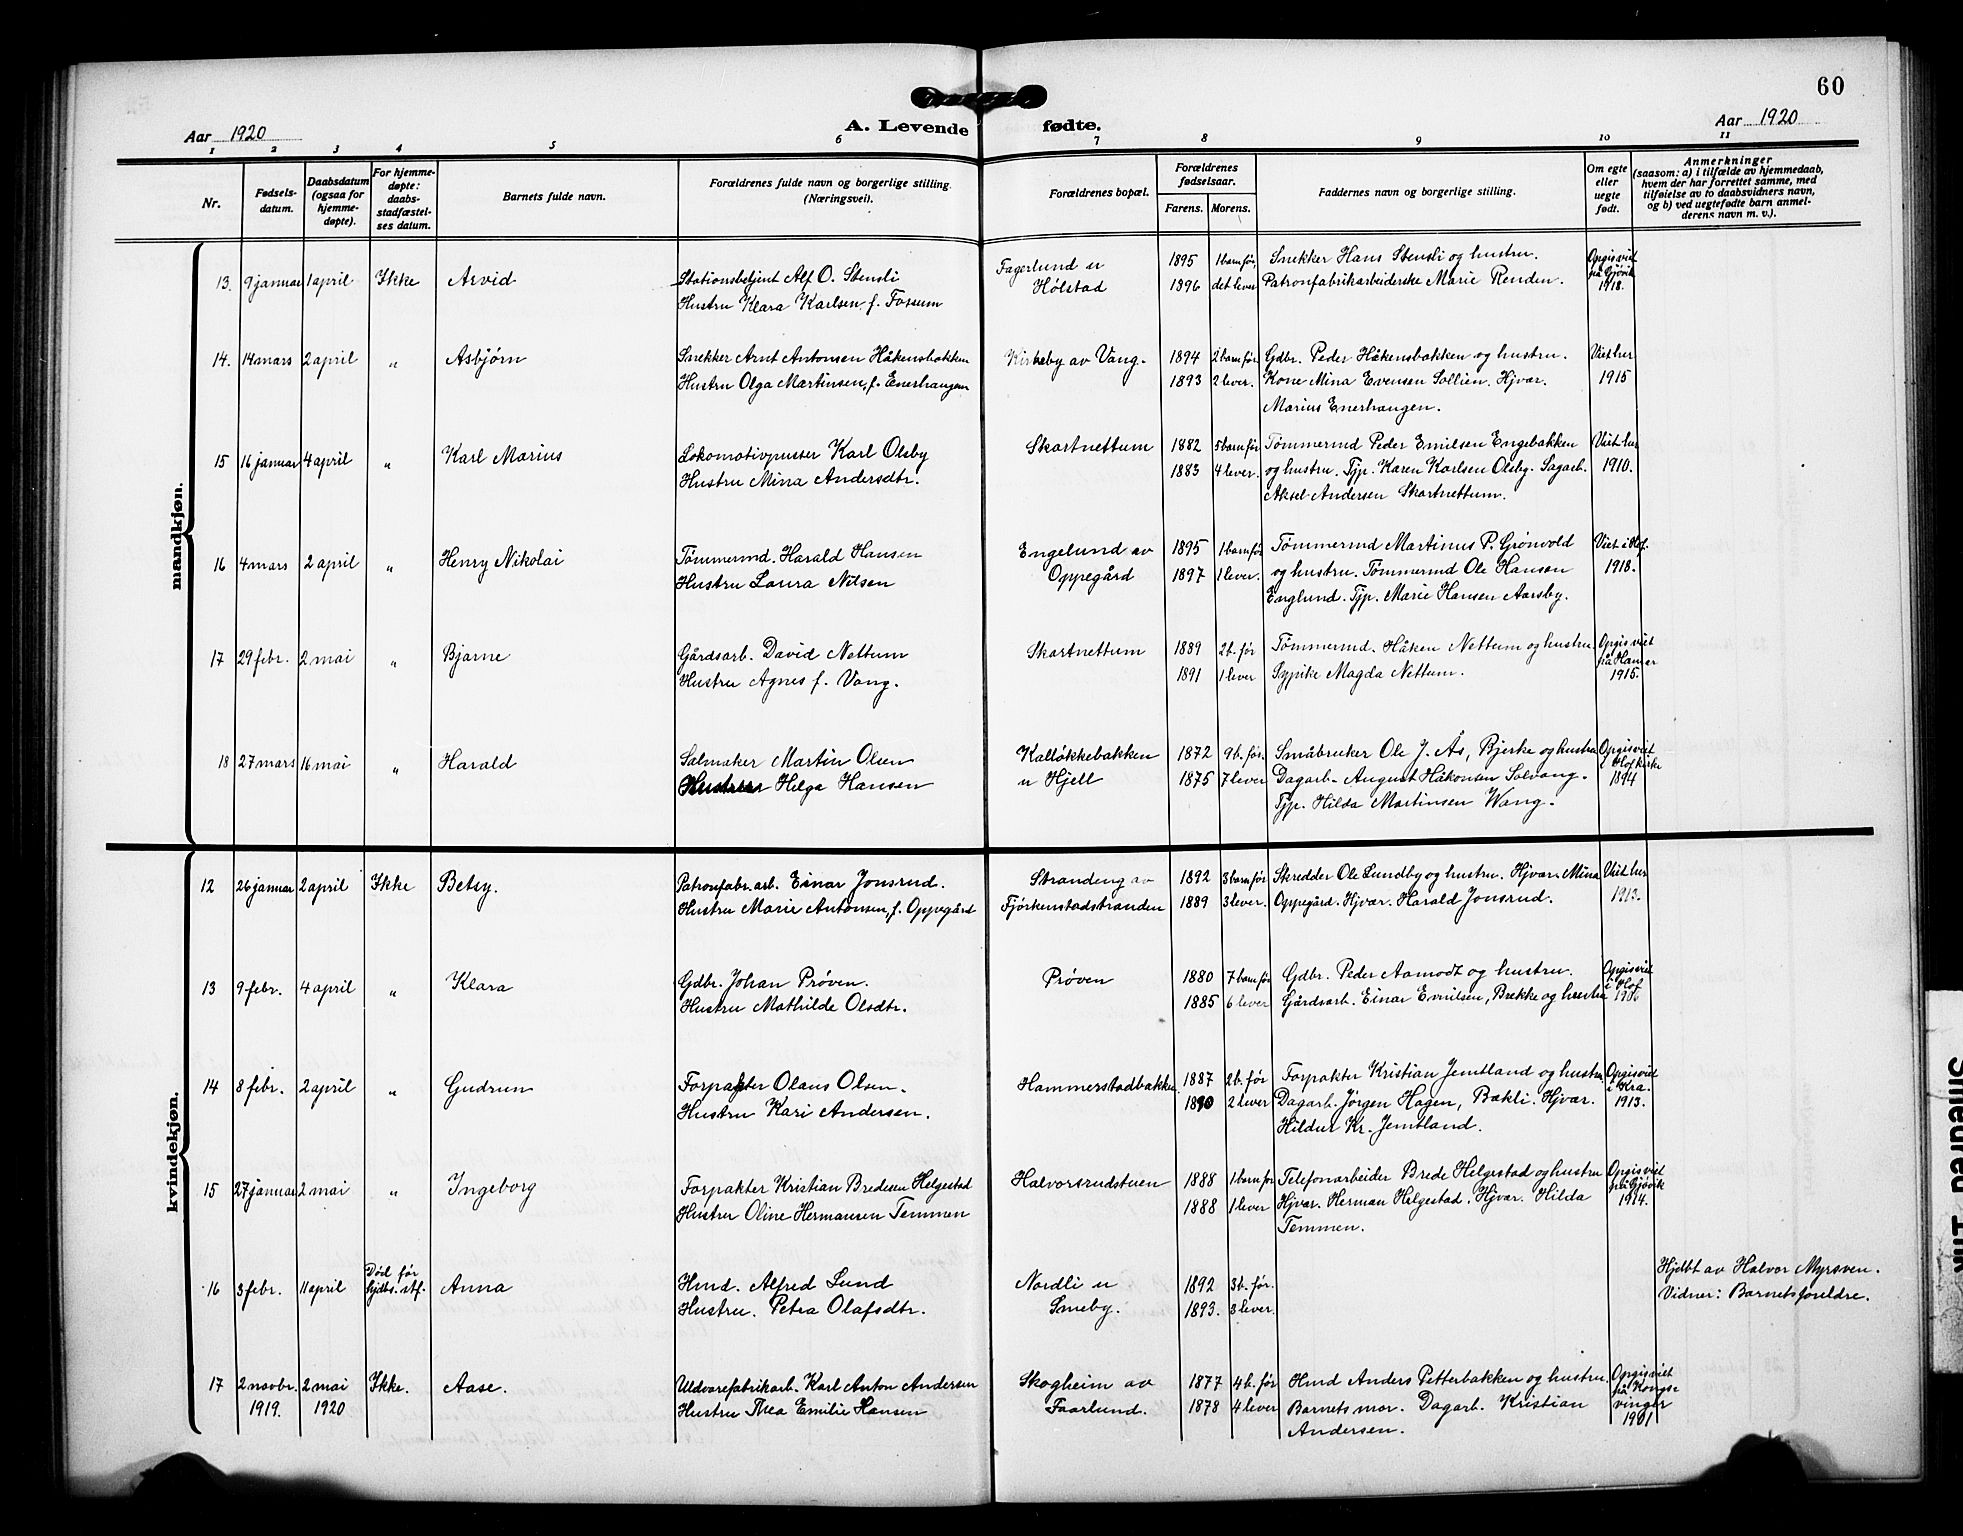 60
Aar 1920
A. Levende fødte.
Aar 1920
1 2 3 4 5 6 7 8 9 10 11
Nr.
Fødsels-
datum.
Daabsdatum
(ogsaa for
hjemme-
døpte).
For hjemme-
døpte:
daabs-
stadfæstel-
ses datum.
Barnets fulde navn.
Forældrenes fulde navn og borgerlige stilling.
(Næringsvei).
Forældrenes bopæl.
Forældrenes
fødselsaar.
Farens. Morens.
Faddernes navn og borgerlige stilling.
Om egte
eller
uegte
født.
Anmerkninger
(saasom: a) i tilfælde av hjemmedaab,
hvem der har forrettet samme, med
tilføielse av to daabsvidners navn,
og b) ved uegtefødte barn anmel-
derens navn m. v.).
mandkjøn.
13. 9 januar 1 april Ikke Arvid
Stationsbetjent Alf O. Stensli
Hustru Klara Karlsen f. Fossum
Fagerlund u
Hølstad
1895 1 barn før,
1896 det lever
Snekker Hans Stensli og hustru.
Patronfabrikarbeiderske Marie Renden.
Opgis viet
på Gjøvik
1918.
14. 14 mars 2 april " Asbjørn
Snekker Arnt Antonsen Håkensbakken
Hustru Olga Martinsen, f. Enerhaugen
Kirkeby av Vang.
1894 2 barn før
1893 2 lever.
Gdbr. Peder Håkensbakken og hustru.
Kone Mina Evensen Sollien. Hjvar.
Marius Enerhaugen.
Viet her
1915
15 16 januar 4 april " Karl Marius
Lokomotivpusser Karl Olsby
Hustru Mina Andersdtr.
Skartnettum
1882 5 barn før
1883 4 lever.
Tømmermd Peder Emilsen Engebakken
og hustru. Tjp. Karen Karlsen Olsby. Sagarb.
Aksel Andersen Skartnettum.
Viet her
1910.
16 4 mars 2 april " Henry Nikolai
Tømmermd. Harald Hansen
Hustru Laura Nilsen
Engelund av
Oppegård
1895 1 barn før
1897 1 lever.
Tømmermd Martinus P. Grønvold
og hustru. Tømmermd Ole Hansen
Englund. Tjp. Marie Hansen Aarsby.
Viet i Hof.
1918.
17 29 febr. 2 mai " Bjarne
Gårdsarb. David Nettum
Hustru Agnes f. Vang.
Skartnettum
1889 2 b. før
1891 1 lever
Tømmermd. Håken Nettum og hustru
Sypike Magda Nettum.
Opgis viet
på Hamar
1915.
18 27 mars 16 mai " Harald
Salmaker Martin Olsen
Hustru Helga Hansen
Kalløkkebakken
u Hjell
1872 9 b. før.
1875 7 lever
Småbruker Ole J. Ås, Bjerke og hustru
Dagarb. August Håkonsen Solvang.
Tjp. Hilda Martinsen Wang.
Opgis viet
i Hof kirke
1894
kvindekjøn.
12 26 januar 2 april Ikke Betsy.
Patronfabr.arb. Einar Jonsrud.
Hustru Marie Antonsen, f. Oppegård
Stranding av
Fjørkenstadstranden
1892 3 barn før
1889 3 lever.
Skredder Ole Lundby og hustru. Hjvar. Mina
Oppegård. Hjvar. Harald Jonsrud.
Viet her
1913.
13 9 febr. 4 april " Klara
Gdbr. Johan Prøven.
Hustru Mathilde Olsdtr.
Prøven
1880 7 barn før
1885 6 lever
Gdbr. Peder Aamodt og hustru.
Gårdsarb. Einar Emilsen, Brekke og hustru
Opgis viet
i Hof
1906
14 8 febr. 2 april " Gudrun
Forpakter Olaus Olsen.
Hustru Kari Andersen.
Hammerstadbakken
1887 2 b. før
1890 2 lever
Forpakter Kristian Jemtland og hustru
Dagarb. Jørgen Hagen, Bækli. Hjvar.
Hildur Kr. Jemtland.
Opgis viet
i Kra.
1913.
15 27 januar 2 mai " Ingeborg
Forpakter Kristian Bredesen Helgestad
Hustru Oline Hermansen Temmen
Halvorsrudstuen
1888 1 barn før
1888 1 lever
Telefonarbeider Brede Helgestad og hustru
Hjvar. Herman Helgestad. Hjvar. Hilda
Temmen.
Opgis viet
på Gjøvik
1914.
16 3 febr. 11 april Død før
hjdbs. stf. Anna
Hmd. Alfred Lund
Hustru. Petra Olafsdtr.
Nordli u
Smeby.
1892 3 b. før.
1893. 3 lever
Hjdbt av Halvor Myrsven.
Vidner: Barnets foreldre.
17 2 novbr. 2 mai Ikke. Aase.
1919. 1920
Uldvarefabrikarb. Karl Anton Andersen
Hustru Thea Emilie Hansen
Skogheim av
Faarlund.
1877 4 b. før
1878 4 lever
Hmd Anders Petterbakken og hustru.
Barnets mor. Dagarb. Kristian
Andersen.
Opgis viet
på Kongs-
vinger
1901